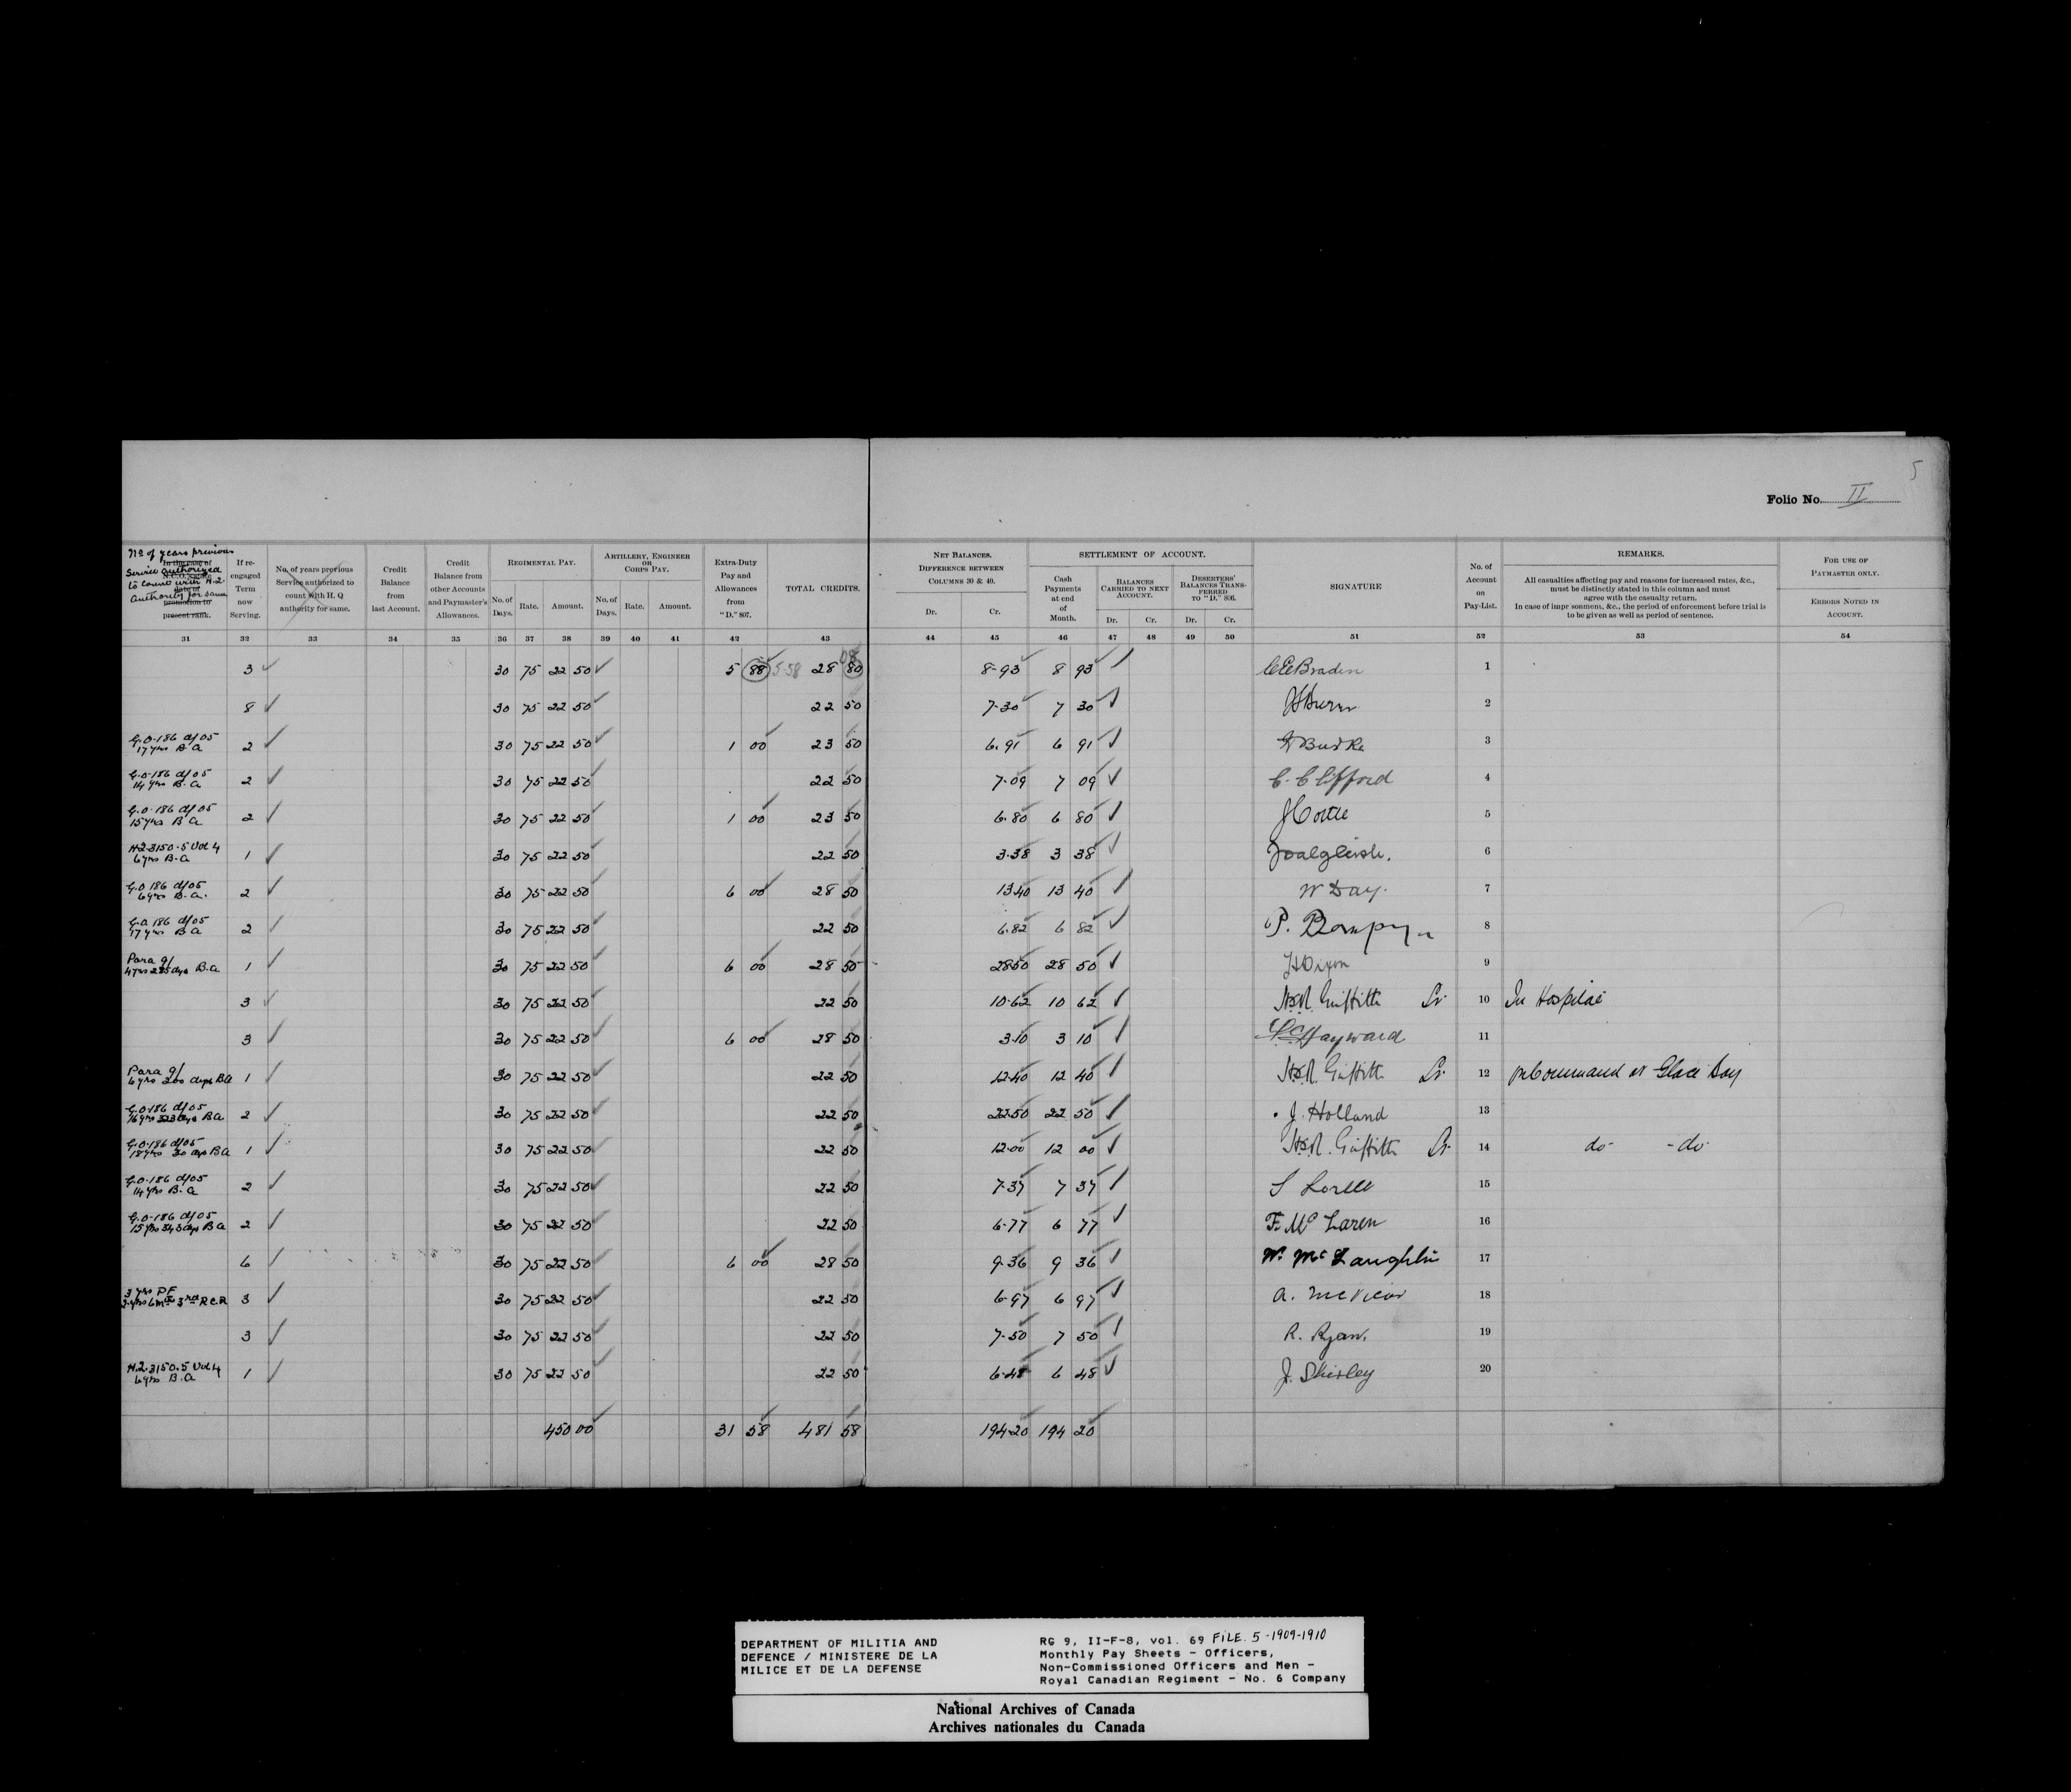 5
Folio No. II
No of years previous Service authorized to count with H.Q. authority for same
In the case of N.C.O. date of promotion to present rank.
If re-engaged Term now Serving.
No. of years previous Service authorized to count with H. Q authority for same.
Credit Balance from last Account.
Credit Balance from other Accounts and Paymaster's Allowances.
REGIMENTAL PAY.
No. of Days. Rate. Amount.
ARTILLERY, ENGINEER OR CORPS PAY.
No. of Days. Rate. Amount.
Extra-Duty Pay and Allowances from "D." 807.
TOTAL CREDITS.
NET BALANCES.
DIFFERENCE BETWEEN COLUMNS 30 & 40.
Dr. Cr.
SETTLEMENT OF ACCOUNT.
Cash Payments at end of Month.
BALANCES CARRIED TO NEXT ACCOUNT.
Dr. Cr.
DESERTERS' BALANCES TRANSFERRED TO "D." 806.
Dr. Cr.
SIGNATURE
No. of Account on Pay-List.
REMARKS.
All casualties affecting pay and reasons for increased rates, &c., must be distinctly stated in this column and must agree with the casualty return.
In case of impr sonment, &c., the period of enforcement before trial is to be given as well as period of sentence.
FOR USE OF PAYMASTER ONLY.
ERRORS NOTED IN ACCOUNT.
31 32 33 34 35 36 37 38 39 40 41 42 43 44 45 46 47 48 49 50 51 52 53 54
3 ✓ 30 75 22 50 ✓ 5 88 5.58 28 80 08 8-93 8 93 ✓ Braden 1
8 ✓ 30 75 22 50 ✓ 22 50 7-30 7 30 ✓ 2
G.O. 186 d/05 17 yrs B A 2 ✓ 30 75 22 50 ✓ 1 00 23 50 6.91 6 91 ✓ Burke 3
G.O. 186 d/05 14 yrs B. A 2 ✓ 30 75 22 50 ✓ 22 50 7-09 7 09 ✓ C. Clifford 4
G.O. 186 d/05 15 yrs B A 2 ✓ 30 75 22 50 ✓ 1 00 23 50 6.80 6 80 ✓ 5
H.Q. 3150-5 Vol 4 6 yrs B.A 1 ✓ 30 75 22 50 ✓ 22 50 3.38 3 38 ✓ J Dalgleish. 6
G.O 186 d/05 6 yrs B.A. 2 ✓ 30 75 22 50 ✓ 6 00 28 50 13.40 13 40 ✓ W Day. 7
G.O. 186 d/05 17 yrs B A 2 ✓ 30 75 22 50 ✓ 22 50 6.82 6 82 ✓ 8
Para 91 4 yrs 285 days B.A 1 ✓ 30 75 22 50 ✓ 6 00 28 50 28.50 28 50 ✓ H Dixon 9
3 ✓ 30 75 22 50 ✓ 22 50 10.62 10 62 ✓ Griffith Lt 10 In Hospital
3 ✓ 30 75 22 50 ✓ 6 00 28 50 3.10 3 10 ✓ Hayward 11
Para 91 6 yrs 200 days BA 1 ✓ 30 75 22 50 ✓ 22 50 12.40 12 40 ✓ Griffith Lt 12 on Command at Glace Bay
G.O. 186 d/05 16 yrs 323 days BA 2 ✓ 30 75 22 50 ✓ 22 50 22.50 22 50 ✓ J. Holland 13
G.O. 186 d/05 18 yrs 30 days BA 1 ✓ 30 75 22 50 ✓ 22 50 12.00 12 00 ✓ Griffith Lt 14 do - do
G.O. 186 d/05 14 yrs B. A 2 ✓ 30 75 22 50 ✓ 22 50 7.37 7 37 ✓ 15
G.O. 186 d/05 15 yrs 343 days BA 2 ✓ 30 75 22 50 ✓ 22 50 6.77 6 77 ✓ F. Mc Laren 16
6 ✓ 30 75 22 50 ✓ 6 00 28 50 9.36 9 36 ✓ W. Mc Laughlin 17
3 yrs PF 2 yrs 6 mos 3rd R.C.R 3 ✓ 30 75 22 50 ✓ 22 50 6.97 6 97 ✓ A. McVicar 18
3 ✓ 30 75 22 50 ✓ 22 50 7.50 7 50 ✓ R. Ryan. 19
H.Q. 3150.5 Vol 4 6 yrs B.A 1 ✓ 30 75 22 50 ✓ 22 50 6.48 6 48 ✓ J. Shirley 20
450 00 31 58 481 58 194.20 194 20
DEPARTMENT OF MILITIA AND
DEFENCE / MINISTERE DE LA
MILICE ET DE LA DEFENSE
RG 9, II-F-8, vol. 69 FILE. 5 -1909-1910
Monthly Pay Sheets - Officers,
Non-Commissioned Officers and Men -
Royal Canadian Regiment - No. 6 Company
National Archives of Canada
Archives nationales du Canada